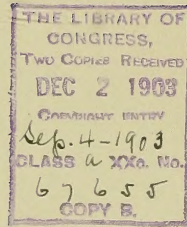 THE LIBRARY OF
CONGRESS,
TWO COPIES RECEIVED
DEC 2 1903
COPYRIGHT ENTRY
Sep. 4-1903
CLASS a XXc. No.
6 7 6 5 5
COPY B.